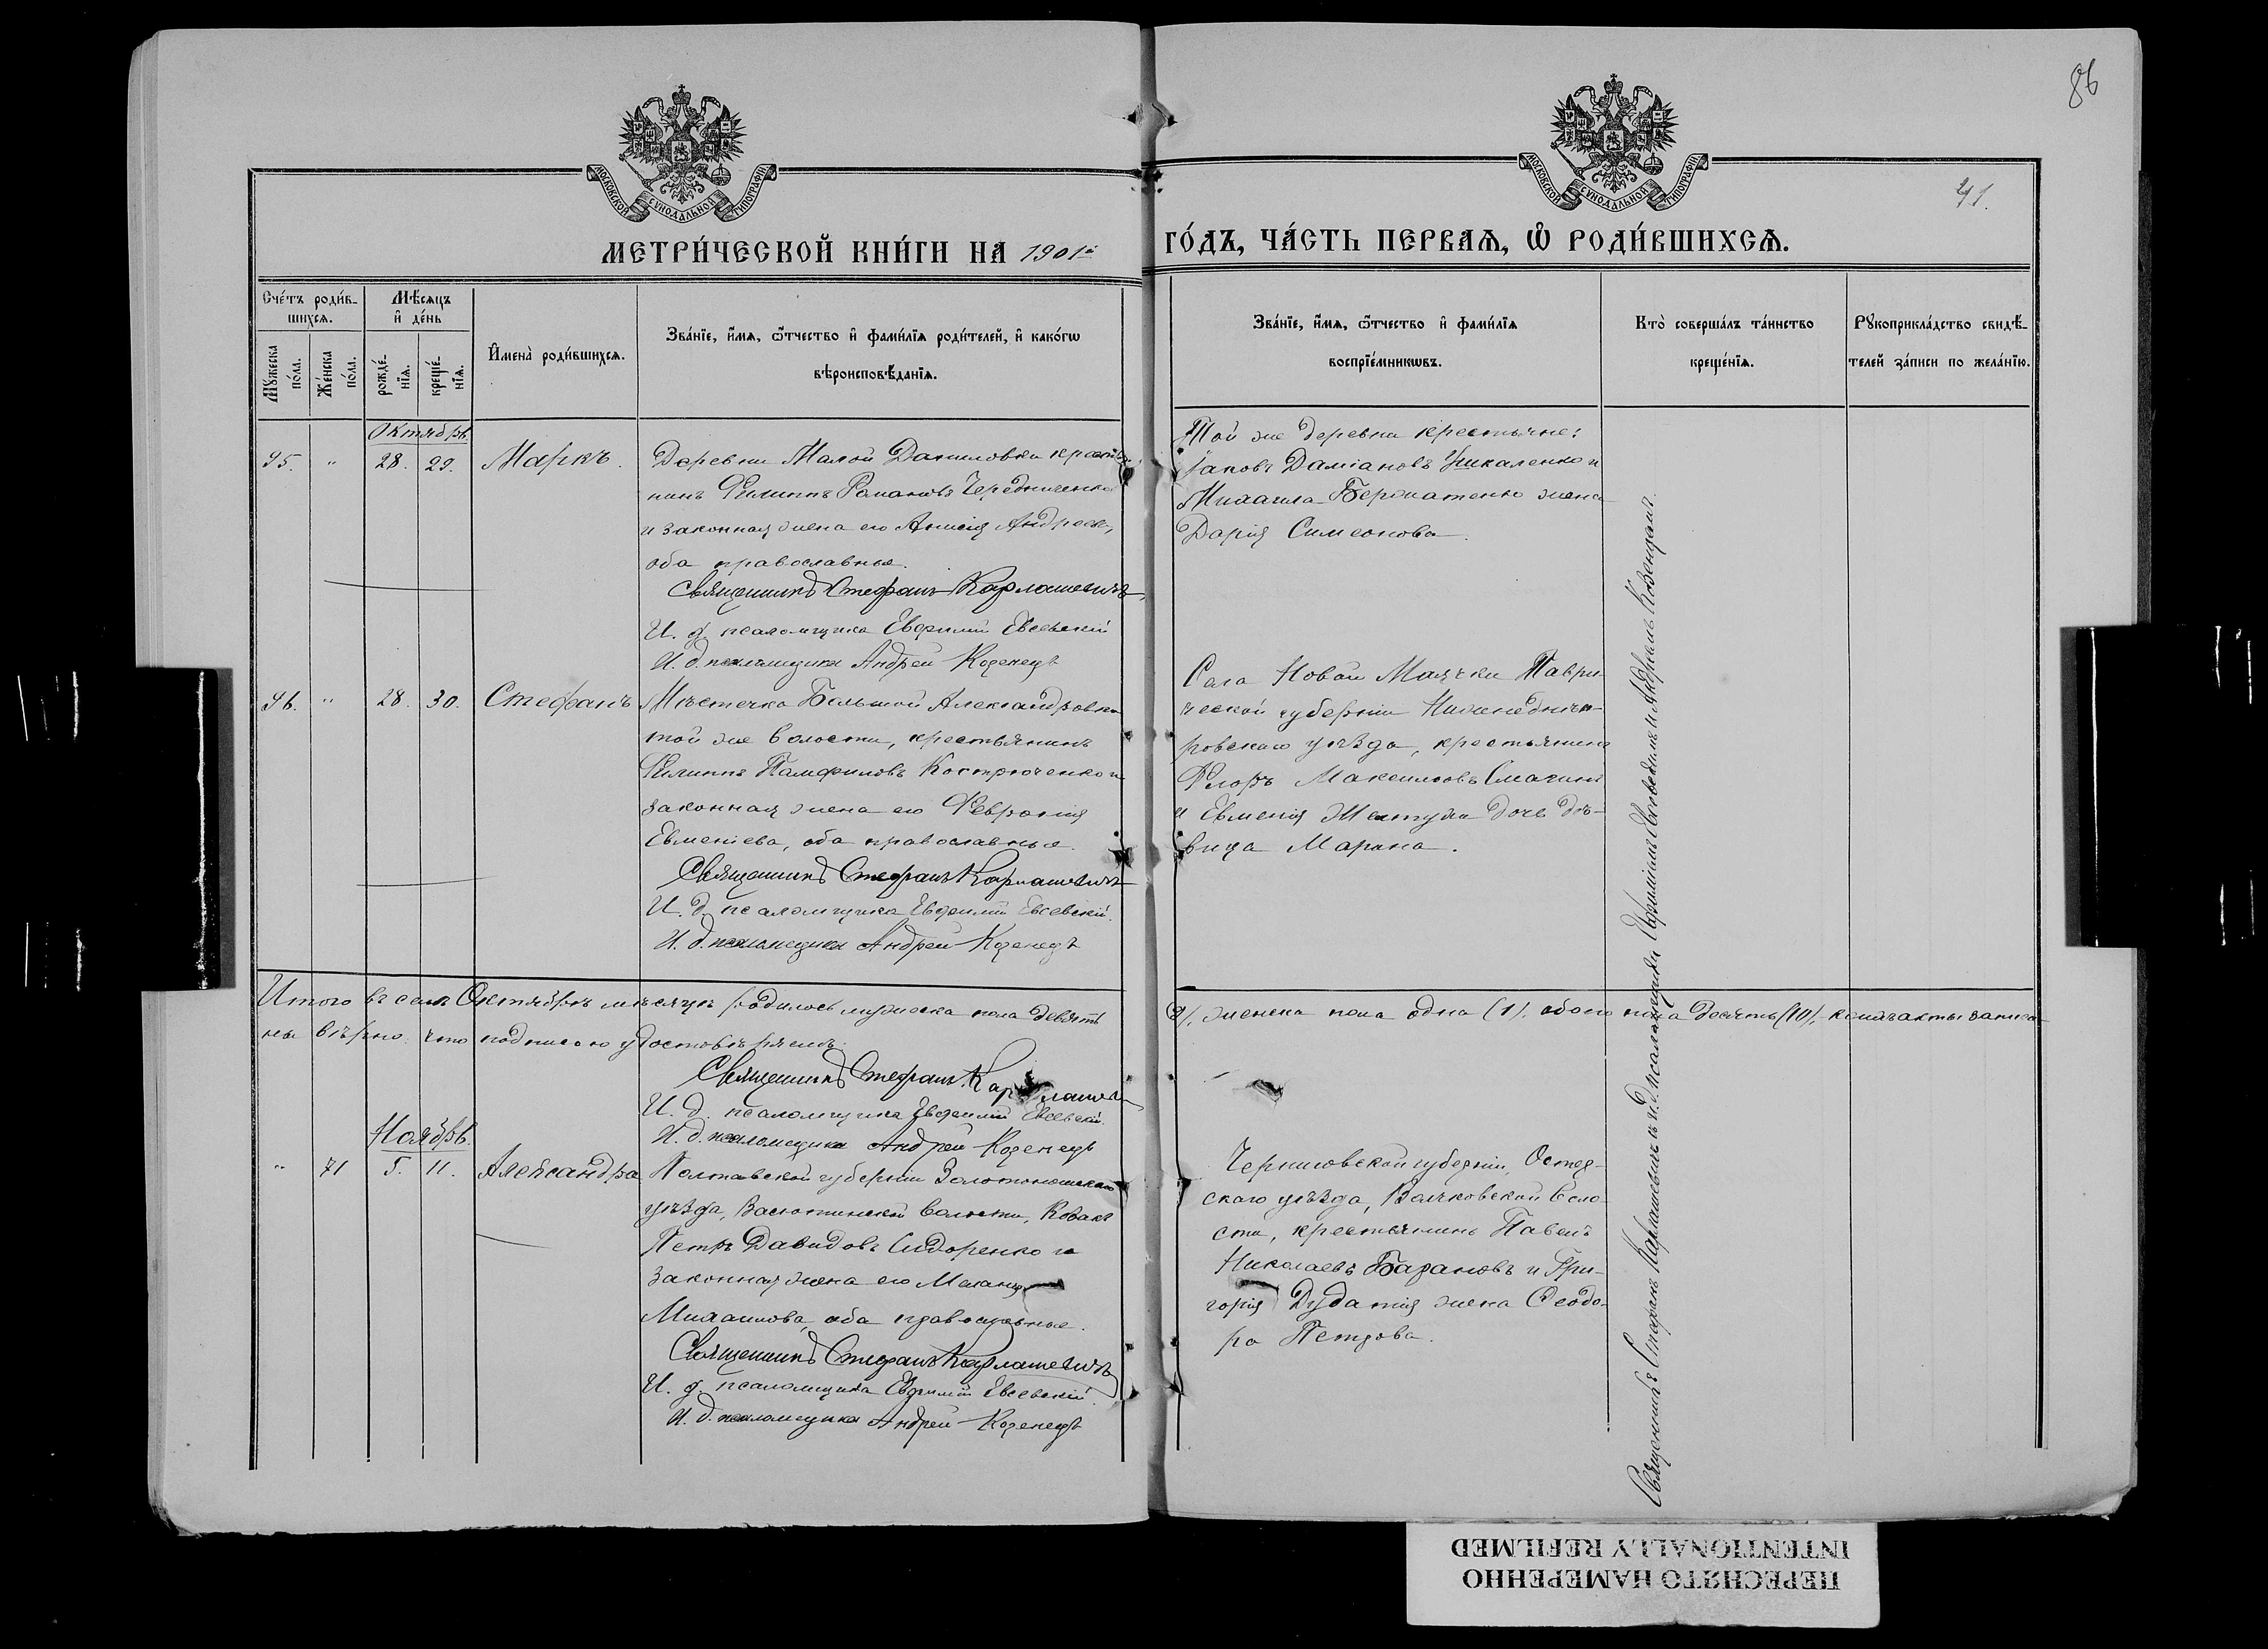 86
41.
МОСКОВСКОЙ СУНОДАЛЬНОЙ ТИПОГРАФІИ
МОСКОВСКОЙ СУНОДАЛЬНОЙ ТИПОГРАФІИ
МЕТРИ́ЧЕСКОЙ КНИ́ГИ НА 1901й
ГО́ДЪ, ЧА́СТЬ ПЕРВАѦ, Ѡ РОДИ́ВШИХСѦ.
Сче́тъ роди́в-
шихсѧ.
Мꙋ́жеска
по́ла.
Же́нска
по́ла.
Мѣ́сѧцъ
и҆ де́нь
рожде́-
нїѧ.
креще́-
нїѧ.
И҆мена̀ роди́вшихсѧ.
Зва́нїе, и҆́мѧ, ѻ҆́тчество и҆ фами́лїѧ роди́телей, и҆ како́гѡ
вѣроисповѣ́данїѧ.
Зва́нїе, и҆́мѧ, ѻ҆́тчество и҆ фами́лїѧ
воспрїе́мникѡвъ.
Кто̀ соверша́лъ та́инство
креще́нїѧ.
Рꙋкоприкла́дство свидѣ́-
телей за́писи по жела́нїю.
Октябрь
95. " 28. 29. Маркъ.
Деревни Малой Даниловки крестья-
нинъ Филиппъ Романовъ Чередниченко
и законная жена его Анисія Андреева,
оба православные.
Священникъ Стефанъ Карлашевичъ
И. д. псаломщика Евфимій Евсевскій
И. д. псаломщика Андрей Коренецъ
Той же деревни крестьяне:
Іаковъ Даміановъ Ушкаленко и
Михаила жена
Дарія Симеонова.
96. " 28. 30. Стефанъ
Мѣстечка Большой Александровки
той же волости, крестьянинъ
Филиппъ Памфиловъ Костюченко и
законная жена его Февронія
Евменіева, оба православные.
Священникъ Стефанъ Карлашевичъ
И. д. псаломщика Евфимій Евсевскій.
И. д. псаломщика Андрей Коренецъ
Села Новой Маячки Таври-
ческой губерніи Нижнеднѣп-
ровскаго уѣзда, крестьянинъ
Флоръ Максимовъ
и Евменія дочь дѣ-
вица Марина.
Итого въ семъ Октябрѣ мѣсяцѣ родилось мужеска пола девять
(9), женска пола одна (1), обоего пола десять (10), акты записа-
ны вѣрно что подписью удостовѣряемъ:
Священникъ Стефанъ Карлашевичъ
И. д. псаломщика Евфимій Евсевскій.
И. д. псаломщика Андрей Коренецъ
Ноябрь.
" 71 5. 11. Александра
Полтавской губерніи Золотоношскаго
уѣзда, Васютинской волости, козакъ
Петръ Давидовъ Сидоренко и
законная жена его Меланія
Михаилова, оба православные.
Священникъ Стефанъ Карлашевичъ
И. д. псаломщика Евфимій Евсевскій.
И. д. псаломщика Андрей Коренецъ
Черниговской губерніи, Остер-
скаго уѣзда, волo-
сти, крестьянинъ Павелъ
Николаевъ Барановъ и Гри-
горія жена Ѳеодо-
ра Петрова.
Священникъ Стефанъ Карлашевичъ и и. д. псаломщика Евфиміемъ Евсевскимъ и Андреемъ
ПЕРЕСНЯТО НАМЕРЕННО
INTENTIONALLY REFILMED